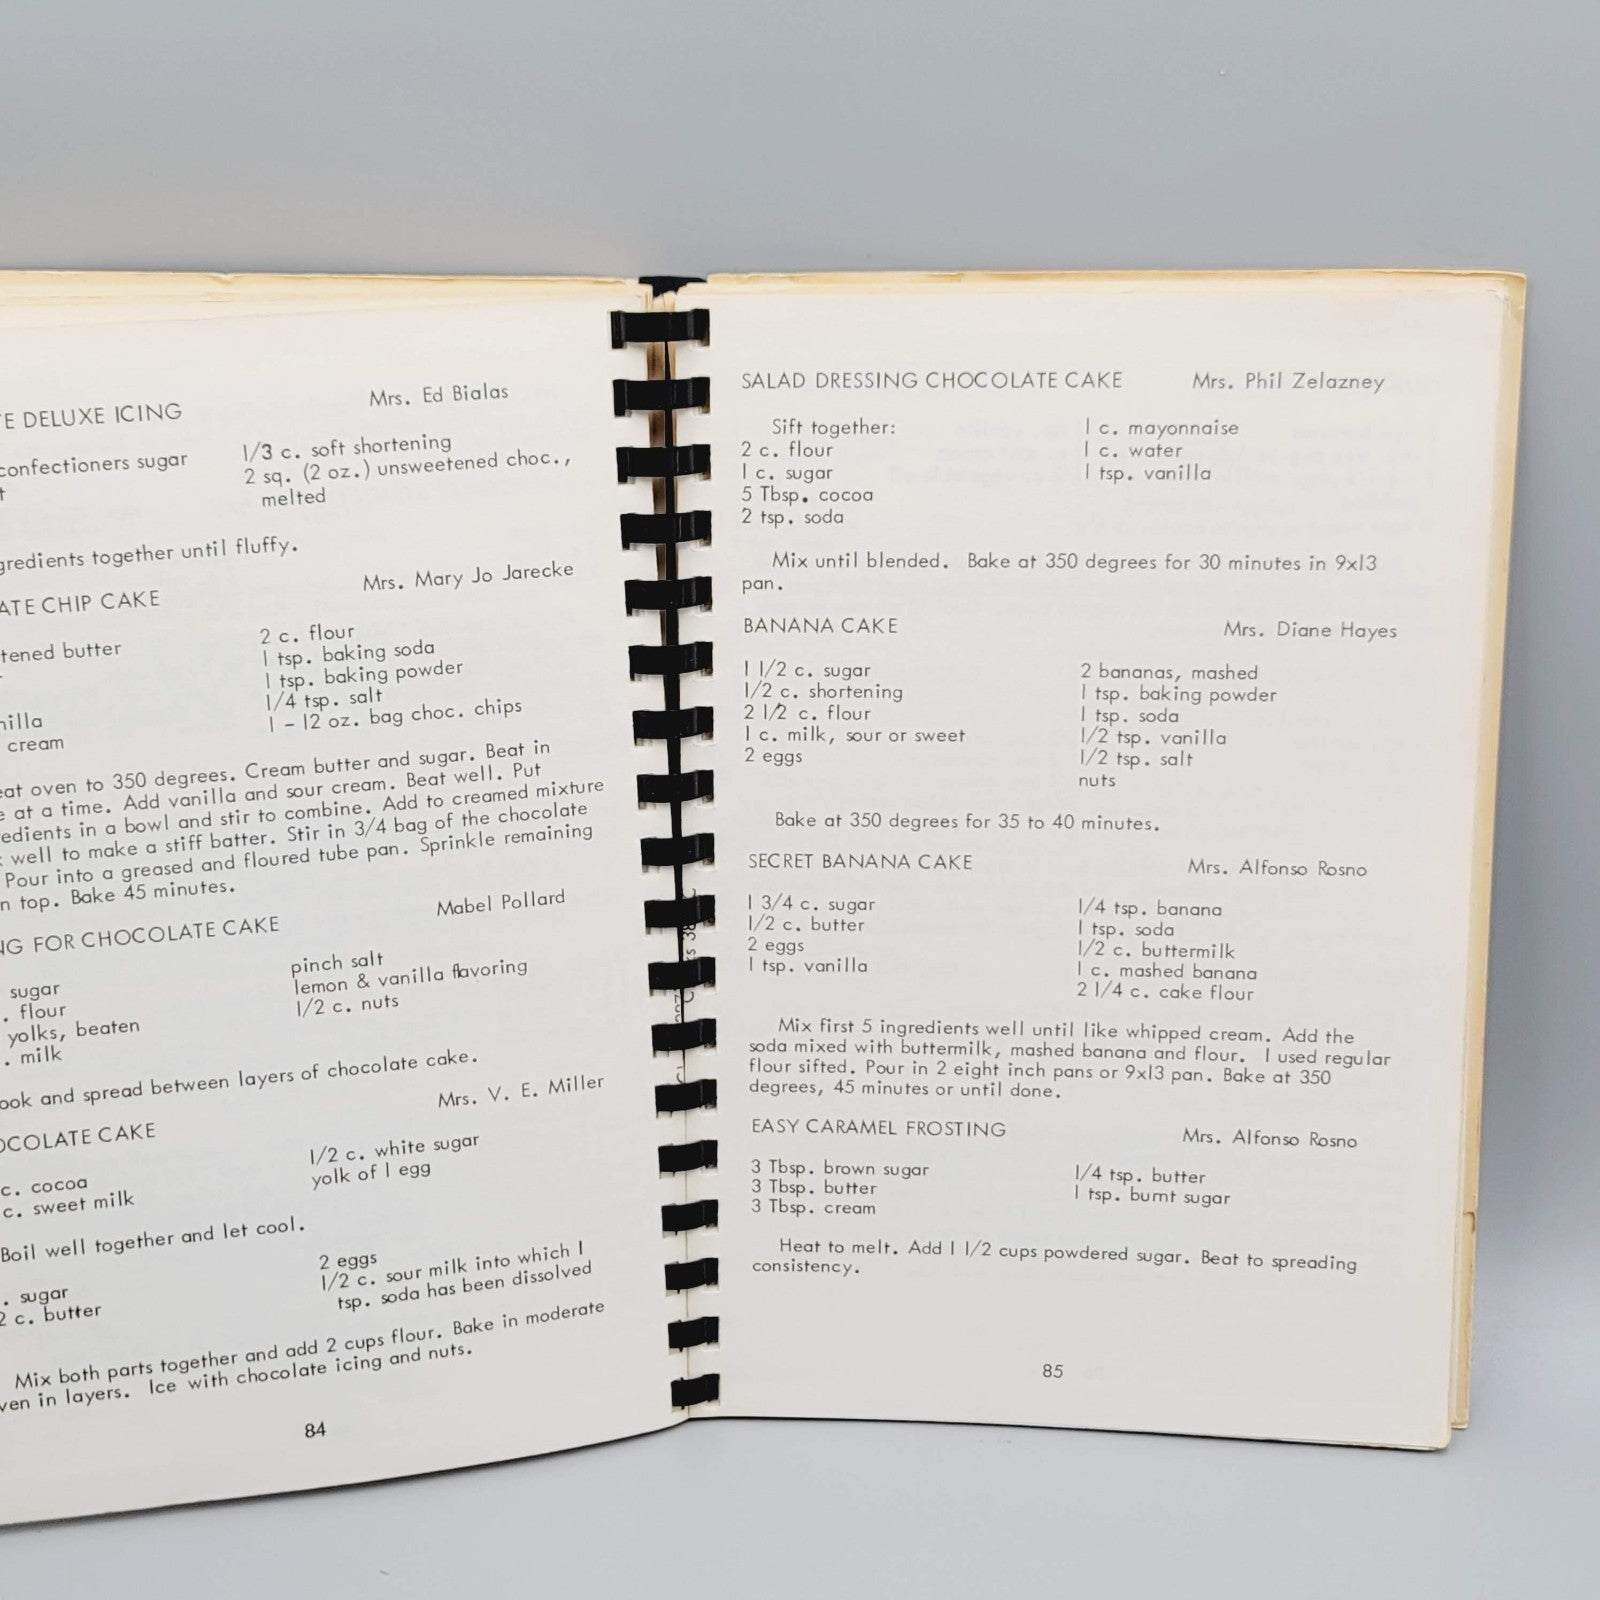 Mrs. Ed Bialas
DELUXE ICING
confectioners sugar
1/3 c. soft shortening
2 sq. (2 oz.) unsweetened choc.,
melted
together until fluffy.
Mrs. Mary Jo Jarecke
CHIP CAKE
butter
cream
2 c. flour
1 tsp. baking soda
1 tsp. baking powder
1/4 tsp. salt
1 - 12 oz. bag choc. chips
oven to 350 degrees. Cream butter and sugar. Beat in
at a time. Add vanilla and sour cream. Beat well. Put
in a bowl and stir to combine. Add to creamed mixture
well to make a stiff batter. Stir in 3/4 bag of the chocolate
Pour into a greased and floured tube pan. Sprinkle remaining
top. Bake 45 minutes.
Mabel Pollard
FOR CHOCOLATE CAKE
sugar
. flour
yolks, beaten
. milk
pinch salt
lemon & vanilla flavoring
1/2 c. nuts
and spread between layers of chocolate cake.
Mrs. V. E. Miller
CAKE
c. cocoa
c. sweet milk
1/2 c. white sugar
yolk of 1 egg
Boil well together and let cool.
. sugar
c. butter
2 eggs
1/2 c. sour milk into which 1
tsp. soda has been dissolved
Mix both parts together and add 2 cups flour. Bake in moderate
in layers. Ice with chocolate icing and nuts.
84
SALAD DRESSING CHOCOLATE CAKE Mrs. Phil Zelazney
Sift together:
2 c. flour
1 c. sugar
5 Tbsp. cocoa
2 tsp. soda
1 c. mayonnaise
1 c. water
1 tsp. vanilla
Mix until blended. Bake at 350 degrees for 30 minutes in 9x13
pan.
BANANA CAKE Mrs. Diane Hayes
1 1/2 c. sugar
1/2 c. shortening
2 1/2 c. flour
1 c. milk, sour or sweet
2 eggs
2 bananas, mashed
1 tsp. baking powder
1 tsp. soda
1/2 tsp. vanilla
1/2 tsp. salt
nuts
Bake at 350 degrees for 35 to 40 minutes.
SECRET BANANA CAKE Mrs. Alfonso Rosno
1 3/4 c. sugar
1/2 c. butter
2 eggs
1 tsp. vanilla
1/4 tsp. banana
1 tsp. soda
1/2 c. buttermilk
1 c. mashed banana
2 1/4 c. cake flour
Mix first 5 ingredients well until like whipped cream. Add the
soda mixed with buttermilk, mashed banana and flour. I used regular
flour sifted. Pour in 2 eight inch pans or 9x13 pan. Bake at 350
degrees, 45 minutes or until done.
EASY CARAMEL FROSTING Mrs. Alfonso Rosno
3 Tbsp. brown sugar
3 Tbsp. butter
3 Tbsp. cream
1/4 tsp. butter
1 tsp. burnt sugar
Heat to melt. Add 1 1/2 cups powdered sugar. Beat to spreading
consistency.
85